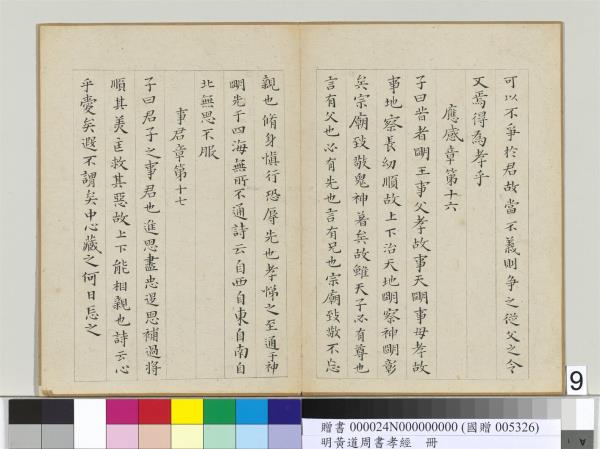 可以不爭於君故當不義則爭之從父之令
又焉得為孝乎
應感章第十六
子曰昔者明王事父孝故事天明事母孝故
事地察長幼順故上下治天地明察神明彰
矣宗廟致敬鬼神著矣故雖天子必有尊也
言有父也必有先也言有兄也宗廟致敬不忘
親也脩身慎行恐辱先也孝悌之至通于神
明光于四海無所不通詩云自西自東自南自
北無思不服
事君章第十七
子曰君子之事君也進思盡忠退思補過將
順其美匡救其惡故上下能相親也詩云心
乎愛矣遐不謂矣中心藏之何日忘之
9
贈書 000024N000000000 (國贈 005326)
明黃道周書孝經 冊